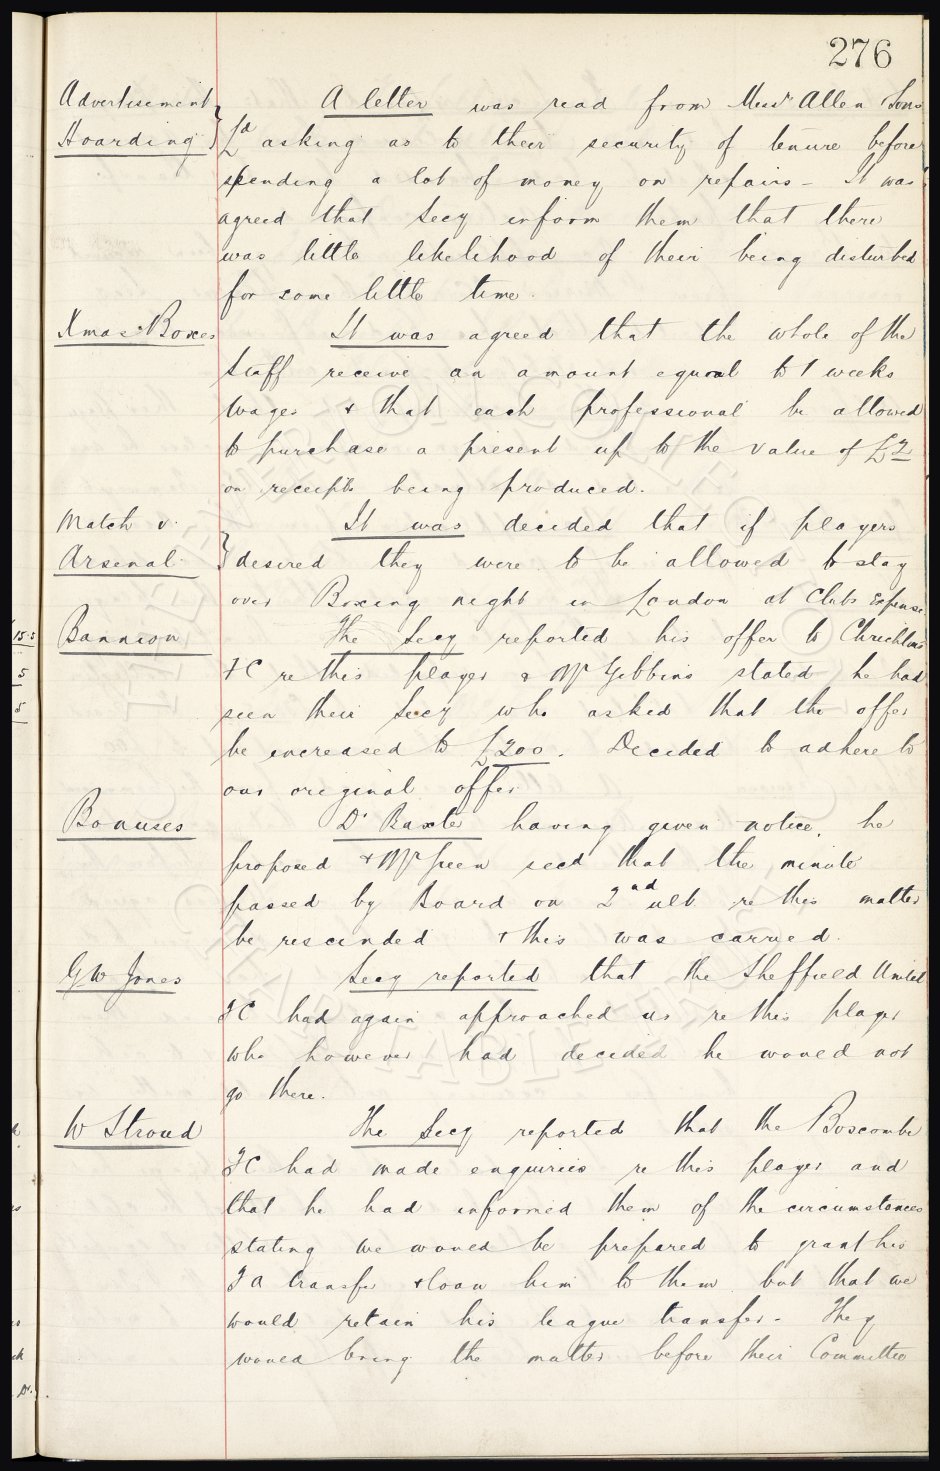 276
Advertisement
Hoarding
A letter was read from Messrs Allen Sons
Ld asking as to their security of tenure before
spending a lot of money on repairs - It was
agreed that Secy inform them that there
was little likelihood of their being disturbed
for some little time.
Xmas Boxes
It was agreed that the whole of the
Staff receive an amount equal to 1 weeks
wages & that each professional be allowed
to purchase a present up to the value of £2
on receipts being produced.
Match v.
Arsenal.
It was decided that if players
desired they were to be allowed to stay
over Boxing night in London at Clubs Expense
Bannion
The Secy reported his offer to
FC re this player & Mr Gibbins stated he had
seen their Secy who asked that the offer
be increased to £200. Decided to adhere to
our original offer
Bonuses
Dr Baxter having given notice, he
proposed & Mr Green secd that the minute
passed by Board on 2nd ult re this matter
be rescinded & this was carried.
G W Jones
Secy reported that the Sheffield United
FC had again approached us re this player
who however had decided he would not
go there.
W Stroud
The Secy reported that the Boscombe
FC had made enquiries re this player and
that he had informed them of the circumstances
stating we would be prepared to grant his
F A transfer & loan him to them but that we
would retain his league transfer - They
would bring the matter before their Committee